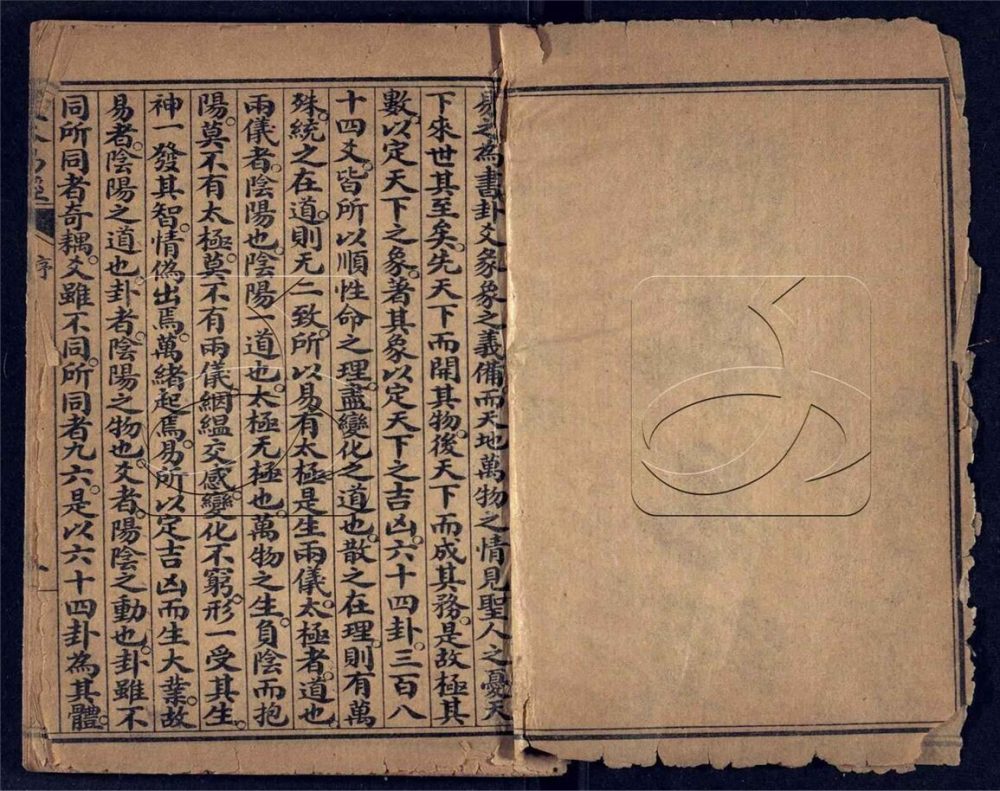 易之為書卦爻彖象之義備。而天地萬物之情見聖人之憂天
下來世其至矣。先天下而開其物。後天下而成其務。是故極其
數。以定天下之象。著其象以定天下之吉凶。六十四卦。三百八
十四爻。皆所以順性命之理。盡變化之道也。散之在理。則有萬
殊。統之在道。則无二致。所以易有太極是生兩儀。太極者。道也。
兩儀者。陰陽也。陰陽一道也。太極无極也。萬物之生。負陰而抱
陽。莫不有太極。莫不有兩儀絪縕交感。變化不窮。形一受其生。
神一發其智。情偽出焉。萬緒起焉。易所以定吉凶而生大業。故
易者。陰陽之道也。卦者。陰陽之物也。爻者。陽陰之動也。卦雖不
同所同者奇耦。爻雖不同。所同者九六。是以六十四卦為其體。
易經
序